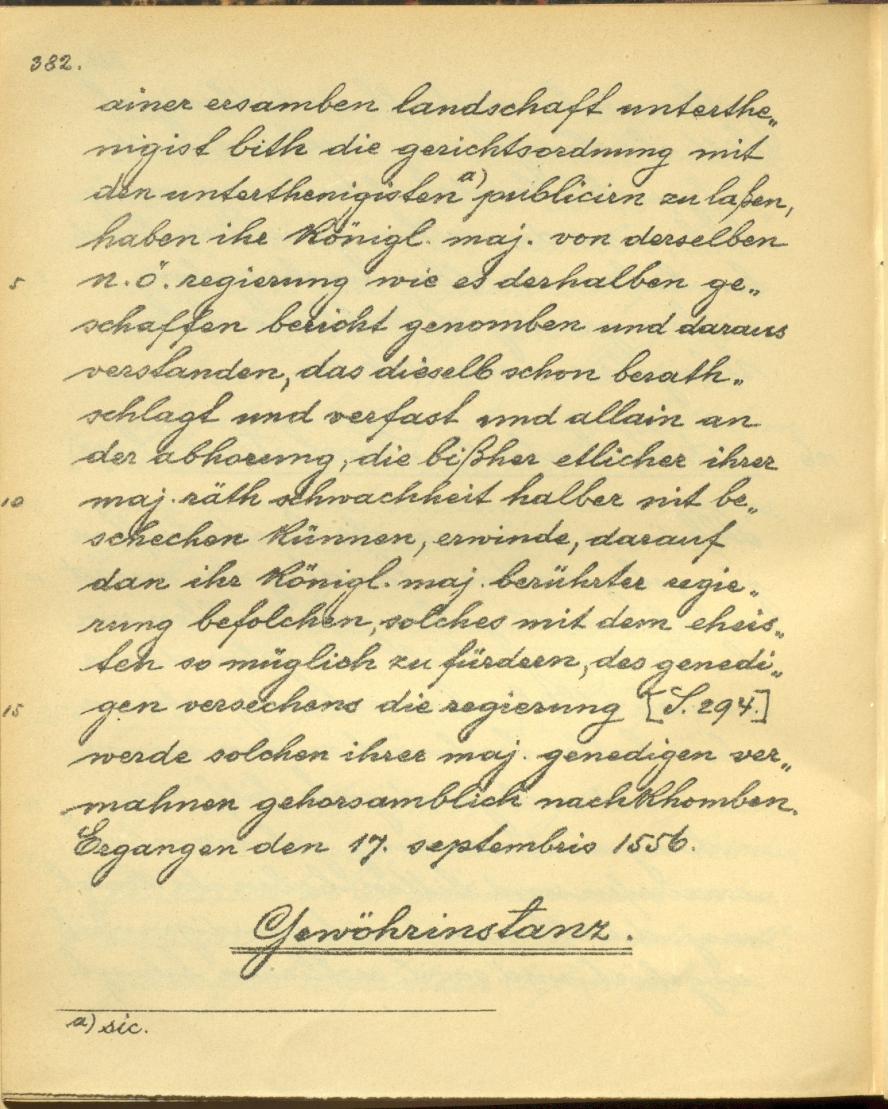 382.
ainer ersamben landschaft unterthe„
nigist bith die gerichtsordnung mit
den unterthenigisten a) publiciern zu laßen,
haben ihr Königl. maj. von derselben
5 n. ö. regierung wie es derhalben ge„
schaffen bericht genomben und daraus
verstanden, das dieselb schon berath„
schlagt und verfast und allain an
der abhorung, die bißher etlicher ihrer
10 maj. räth schwachheit halber nit be„
schechen künnen, erwinde, darauf
dan ihr Königl. maj. berührter regie„
rung befolchen, solches mit dem eheis„
ten so müglich zu fürdern, des genedi„
15 gen versechens die regierung [S. 294.]
werde solchen ihrer maj. genedigen ver„
mahnen gehorsamblich nachkhomben.
Ergangen den 17. septembris 1556.
Gewöhrinstanz.
a) sic.